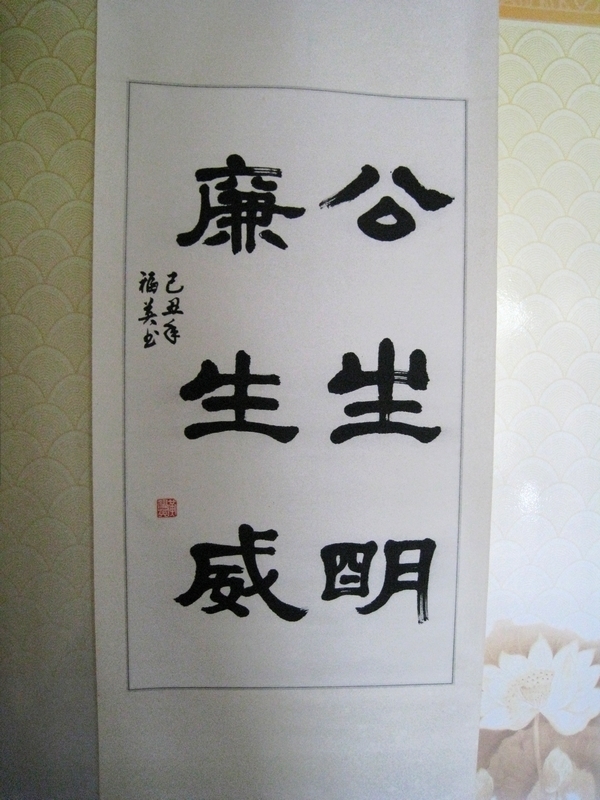 公生明
廉生威
己丑年
福英书